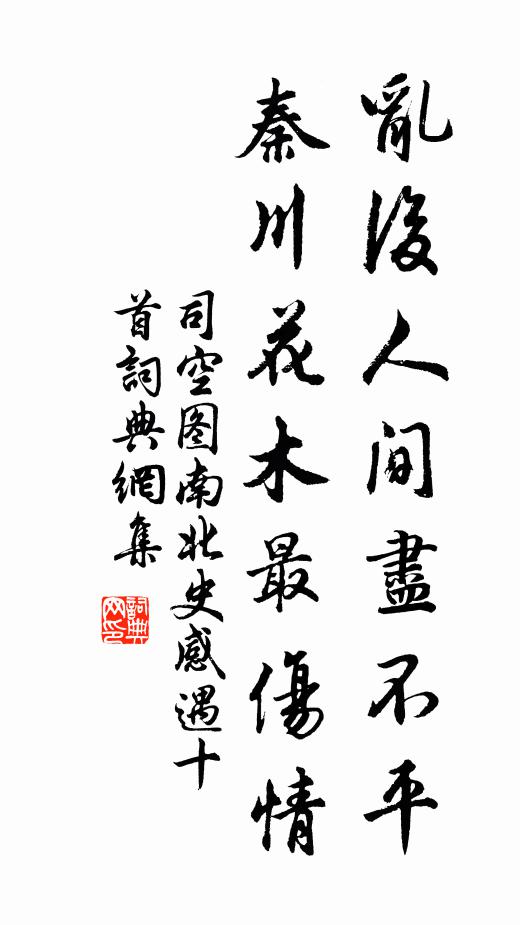 亂後人间盡不平
秦川花木最傷情
司空图南北史感遇十
首詞典網集
詞典网印